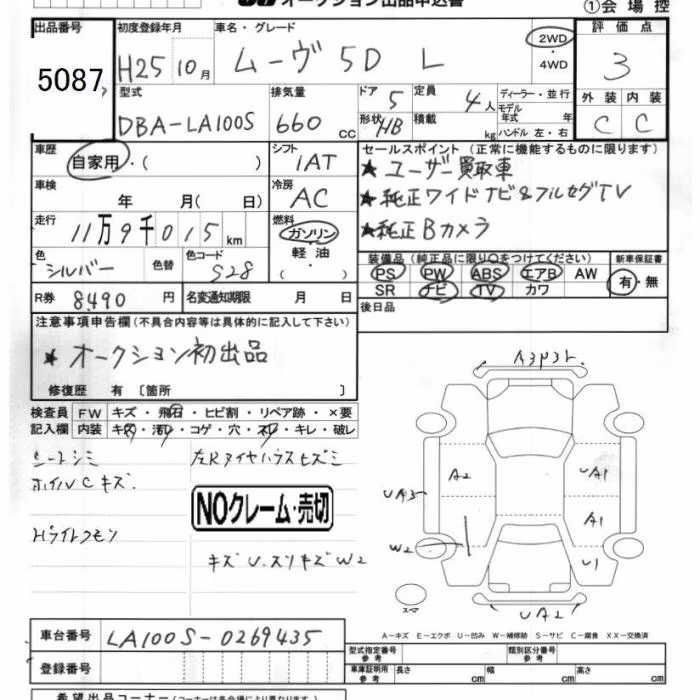 オークション出品申込書
①会場控
出品番号
5087
初度登録年月
H25 10月
車名・グレード
ムーヴ 5D L
2WD
・
4WD
評価点
3
外装 内装
C C
型式
DBA-LA100S
排気量
660 cc
ドア 5
形状 HB
定員 4人
積載 kg
ディーラー・並行
モデル年式 年
ハンドル 左・右
車歴
自家用・( )
シフト
IAT
セールスポイント(正常に機能するものに限ります)
★ユーザー買取車
★純正ワイドナビ&フルセグTV
★純正Bカメラ
車検
年 月( 日)
冷房
AC
走行
11万9千015km
燃料
ガソリン
・
軽油
( )
色
シルバー
色替
色コード
S28
装備品(純正品に限り○をつけてください)
PS PW ABS エアB AW
SR ナビ TV カワ
新車保証書
有・無
R券 8490円
名変通知期限 月 日
後日品
注意事項申告欄(不具合内容等は具体的に記入して下さい)
★オークション初出品
修復歴 有〔箇所 〕
検査員
記入欄
FW キズ・飛石・ヒビ割・リペア跡・×要
内装 キズ・汚レ・コゲ・穴・スレ・キレ・破レ
シートシミ
ホイルCキズ
左Rタイヤハウスヒズミ
Hライトクモリ
NOクレーム・売切
キズ U.スリキズW2
A3P3
A2
UA1
UA3
A1
W2
U1
スペア
UA2
A－キズ E－エクボ U－凹み W－補修跡 S－サビ C－腐食 XX－交換済
車台番号
LA100S-0269435
登録番号
型式指定番号
参考
類別区分番号
参考
車庫証明用
参考
長さ cm
幅 cm
高さ cm
希望出品コーナー(コーナーは各会場により異なります)